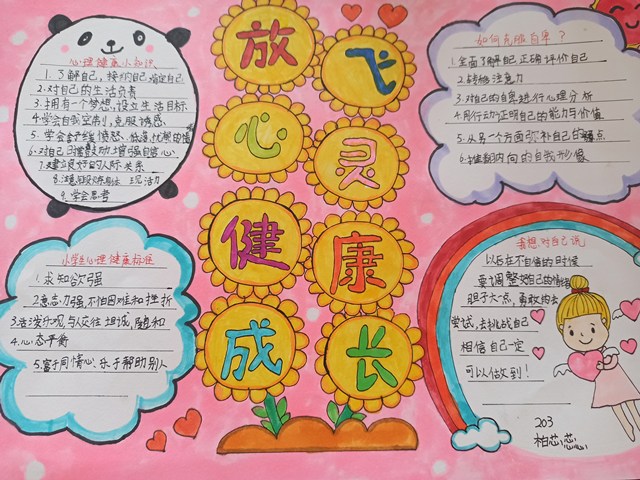 放飞
心灵
健康
成长
心理健康小知识
1.了解自己,接纳自己,肯定自己
2.对自己的生活负责
3.拥有一个梦想,设立生活目标
4.学会自我控制,克服诱惑
5.学会
6.对自己 鼓励增强自信心
7.建立良好的人际关系
活力
9.学会思考
小学生心理健康标准
1.求知欲强
2.意志力强,不怕困难和挫折
3.活泼乐观,与人交往坦诚,随和
4.心态平衡
5.富于同情心、乐于帮助别人
如何克服自卑?
1.全面了解自己正确评价自己
2.转移注意力
3.对自己的自卑进行心理分析
4.用行动证明自己的能力与价值
5.从另一个方面弥补自己的弱点
6.推翻内向的自我形像
我想对自己说
以后在不自信的时候
要调整好自己的情绪
胆子大一点,勇敢的去
尝试,去挑战自己
相信自己一定
可以做到!
203
柏芯蕊